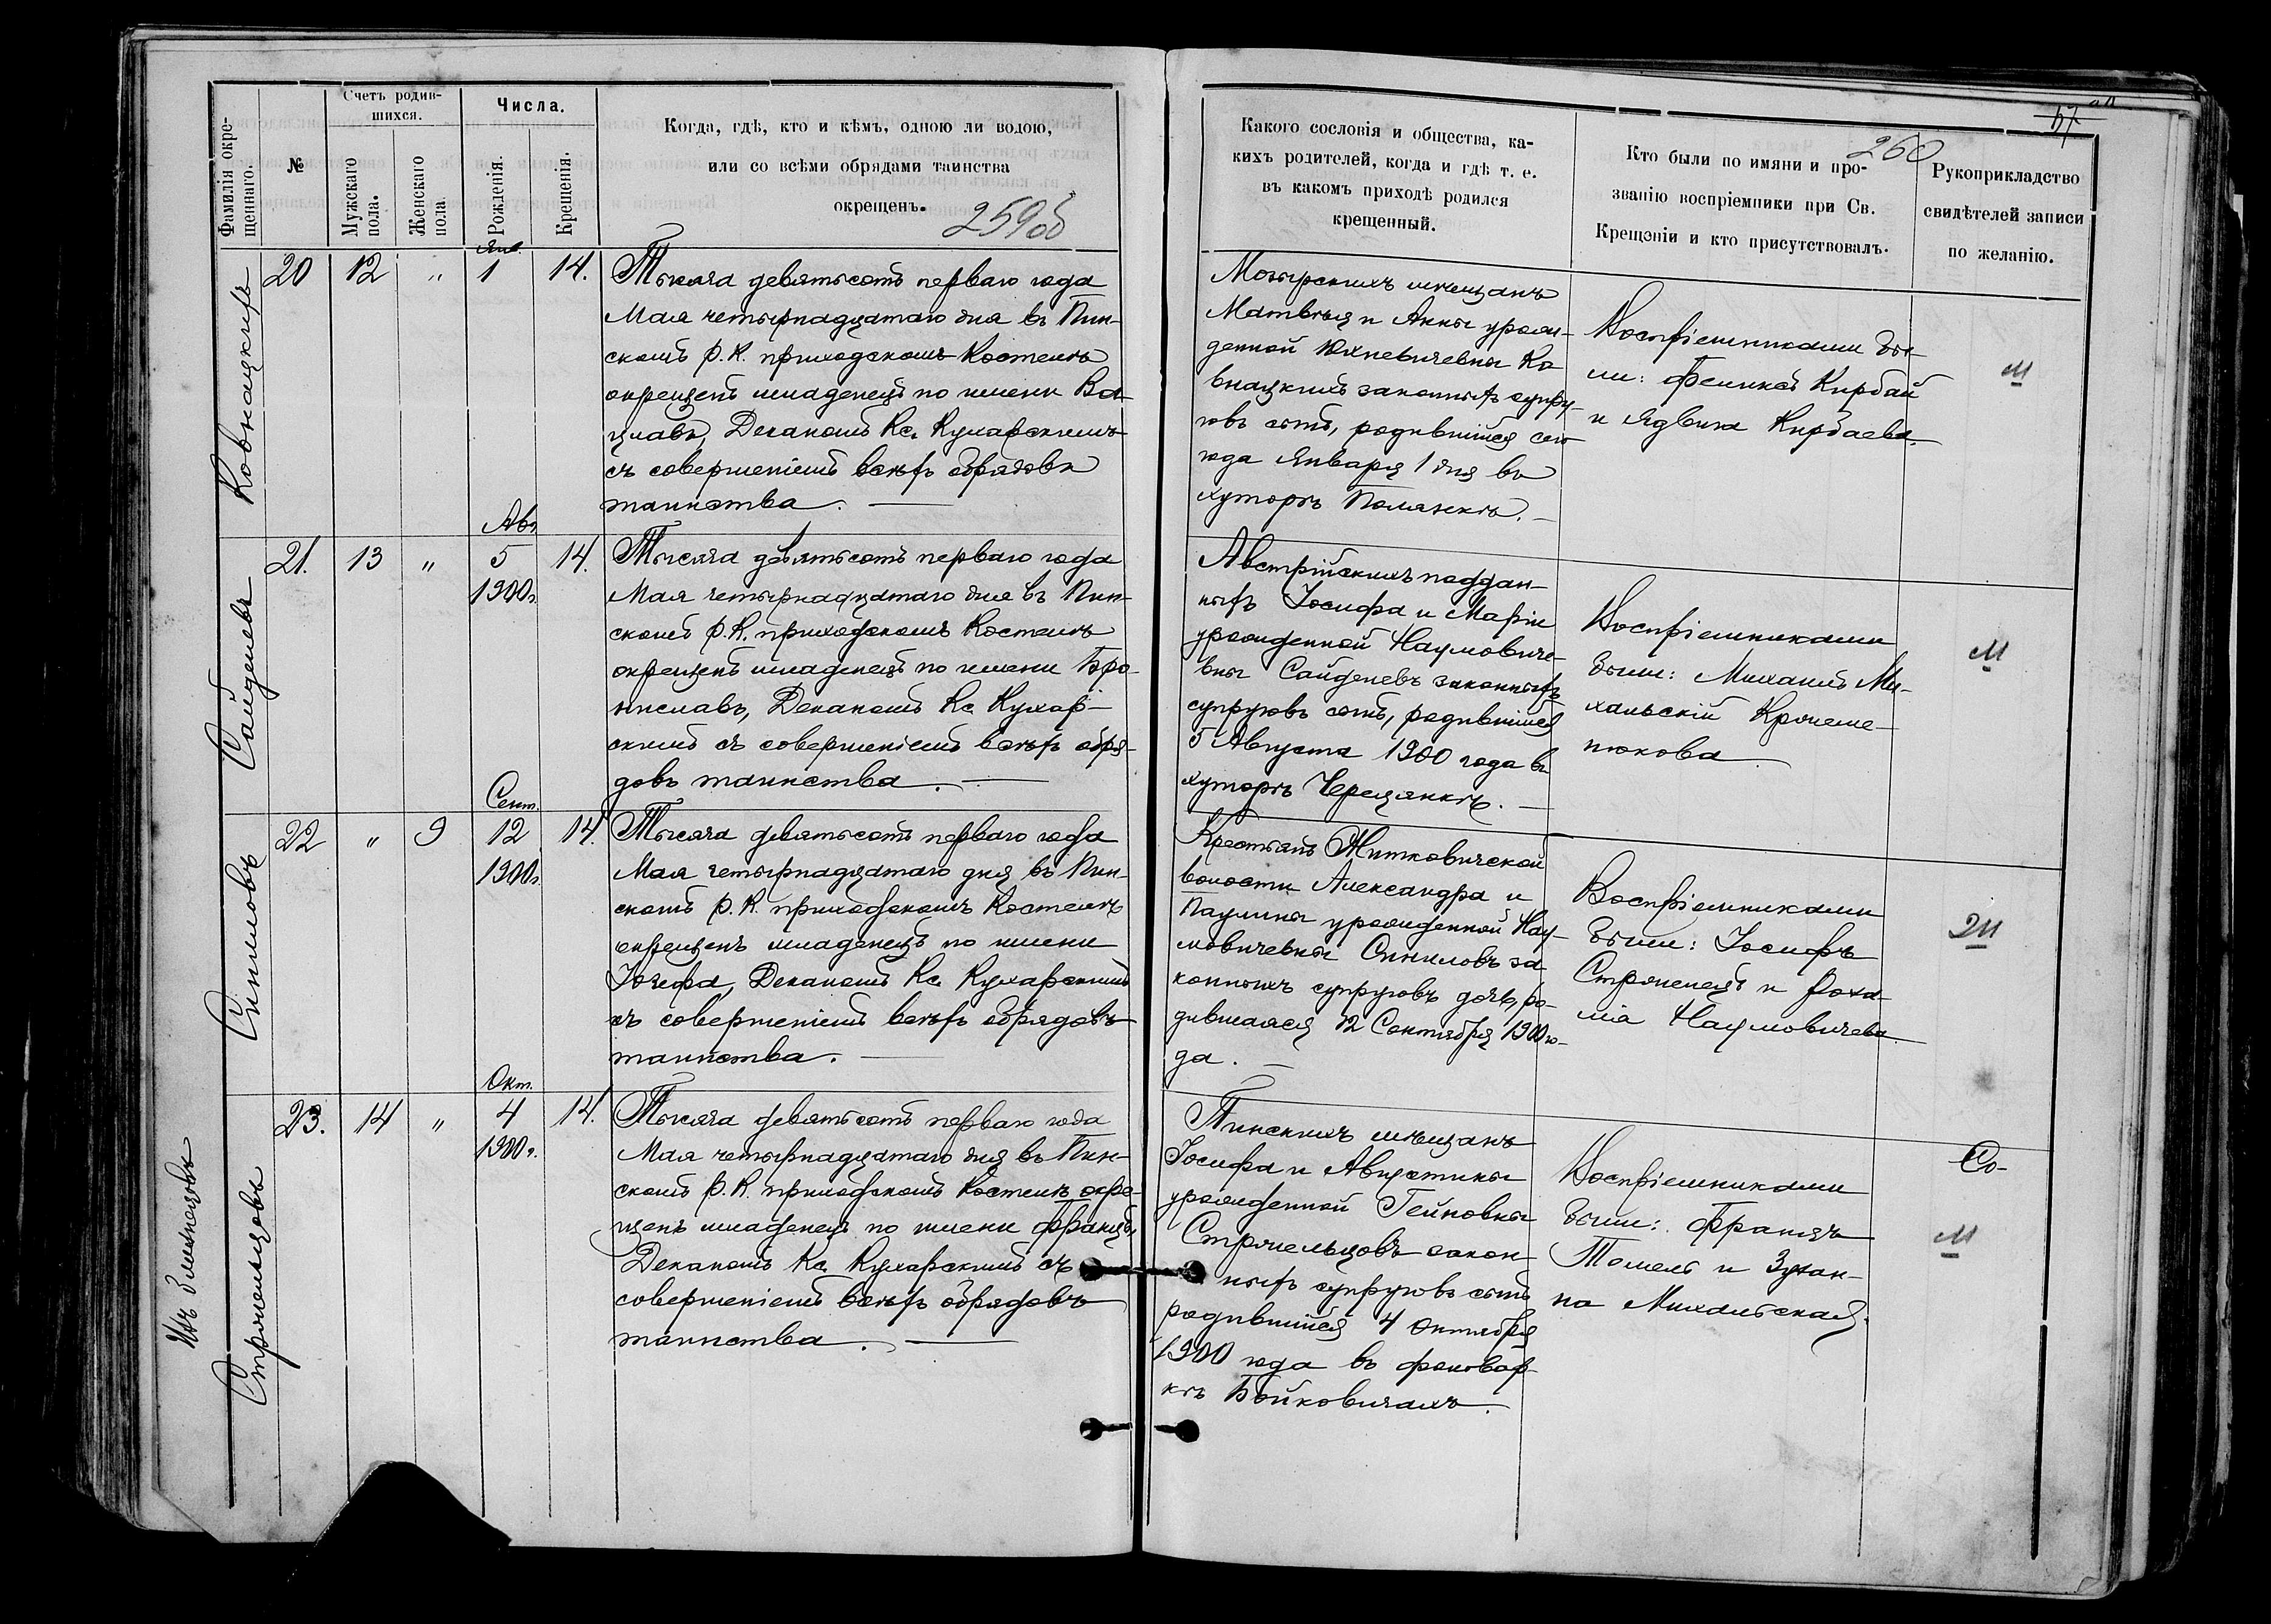 Фамилія окре-
щеннаго.
№
Счетъ родив-
шихся.
Мужскаго
пола.
Женскаго
пола.
Числа.
Рожденія.
Крещенія.
Когда, гдѣ, кто и кѣмъ, одною ли водою,
или со всѣми обрядами таинства
окрещенъ.
259об
Ковнацкихъ
20
12
"
Янв.
1
14.
Тысяча девятьсотъ перваго года
Мая четырнадцатаго дня въ Пин-
скомъ р. К. приходскомъ Костелѣ
окрещенъ младенецъ по имени Ва-
цлавъ, Деканомъ Кс. Кухарскимъ
съ совершеніемъ всѣхъ обрядовъ
таинства.
Сайделевъ
21.
13
"
Авг.
5
1900г.
14.
Тысяча девятьсотъ перваго года
Мая четырнадцатаго дня въ Пин-
скомъ р. К. приходскомъ Костелѣ
окрещенъ младенецъ по имени Бро-
ниславъ, Деканомъ Кс. Кухар-
скимъ съ совершеніемъ всѣхъ обря-
довъ таинства.
Синиловъ
22
"
9
Сент.
12
1900г.
14.
Тысяча девятьсотъ перваго года
Мая четырнадцатаго дня въ Пин-
скомъ р. К. приходскомъ Костелѣ
окрещенъ младенецъ по имени
Юзефа, Деканомъ Кс. Кухарскимъ
съ совершеніемъ всѣхъ обрядовъ
таинства.
Стрѣмельцовъ
23.
14
"
Окт.
4
1900г.
14.
Тысяча девятьсотъ перваго года
Мая четырнадцатаго дня въ Пин-
скомъ р. К. приходскомъ Костелѣ окре-
щенъ младенецъ по имени Францъ,
Деканомъ Кс. Кухарскимъ съ
совершеніемъ всѣхъ обрядовъ
таинства.
57
260
Какого сословія и общества, ка-
кихъ родителей, когда и гдѣ т. е.
въ какомъ приходѣ родился
крещенный.
Кто были по имяни и про-
званію воспріемники при Св.
Крещеніи и кто присутствовалъ.
Рукоприкладство
свидѣтелей записи
по желанію.
Мозырскихъ мѣщанъ
Матвѣя и Анны урож-
денной Юхневичевны Ко
внацкихъ законныхъ супру-
говъ сынъ, родившійся сего
года Января 1 дня въ
хуторѣ Полянкѣ.
Воспріемниками бы-
ли: Феликсъ Кирбай
и Ядвига Кирбаева.
М
Австрійскихъ поддан-
ныхъ Іосифа и Маріи
урожденной Наумовиче-
вны Сайделевъ законныхъ
супруговъ сынъ, родившійся
5 Августа 1900 года въ
хуторѣ Черецянкѣ.
Воспріемниками
были: Михаилъ Ми-
хальскій
М
Крестьянъ Житковичской
волости Александра и
Паулины урожденной Нау-
мовичевны Синиловъ за
конныхъ супруговъ дочь, ро-
дившаяся 12 Сентября 1900 го-
да.
Воспріемниками
были: Іосифъ
Наумовичева.
2М
Пинскихъ мѣщанъ
Іосифа и Августины
урожденной Гейновны
Стрѣмельцовъ закон-
ныхъ супруговъ сынъ
родившійся 4 Октября
1900 года въ фольвар-
кѣ Бойковичахъ.
Воспріемниками
были: Францъ
и Зузан-
на Михальская.
Со-
М